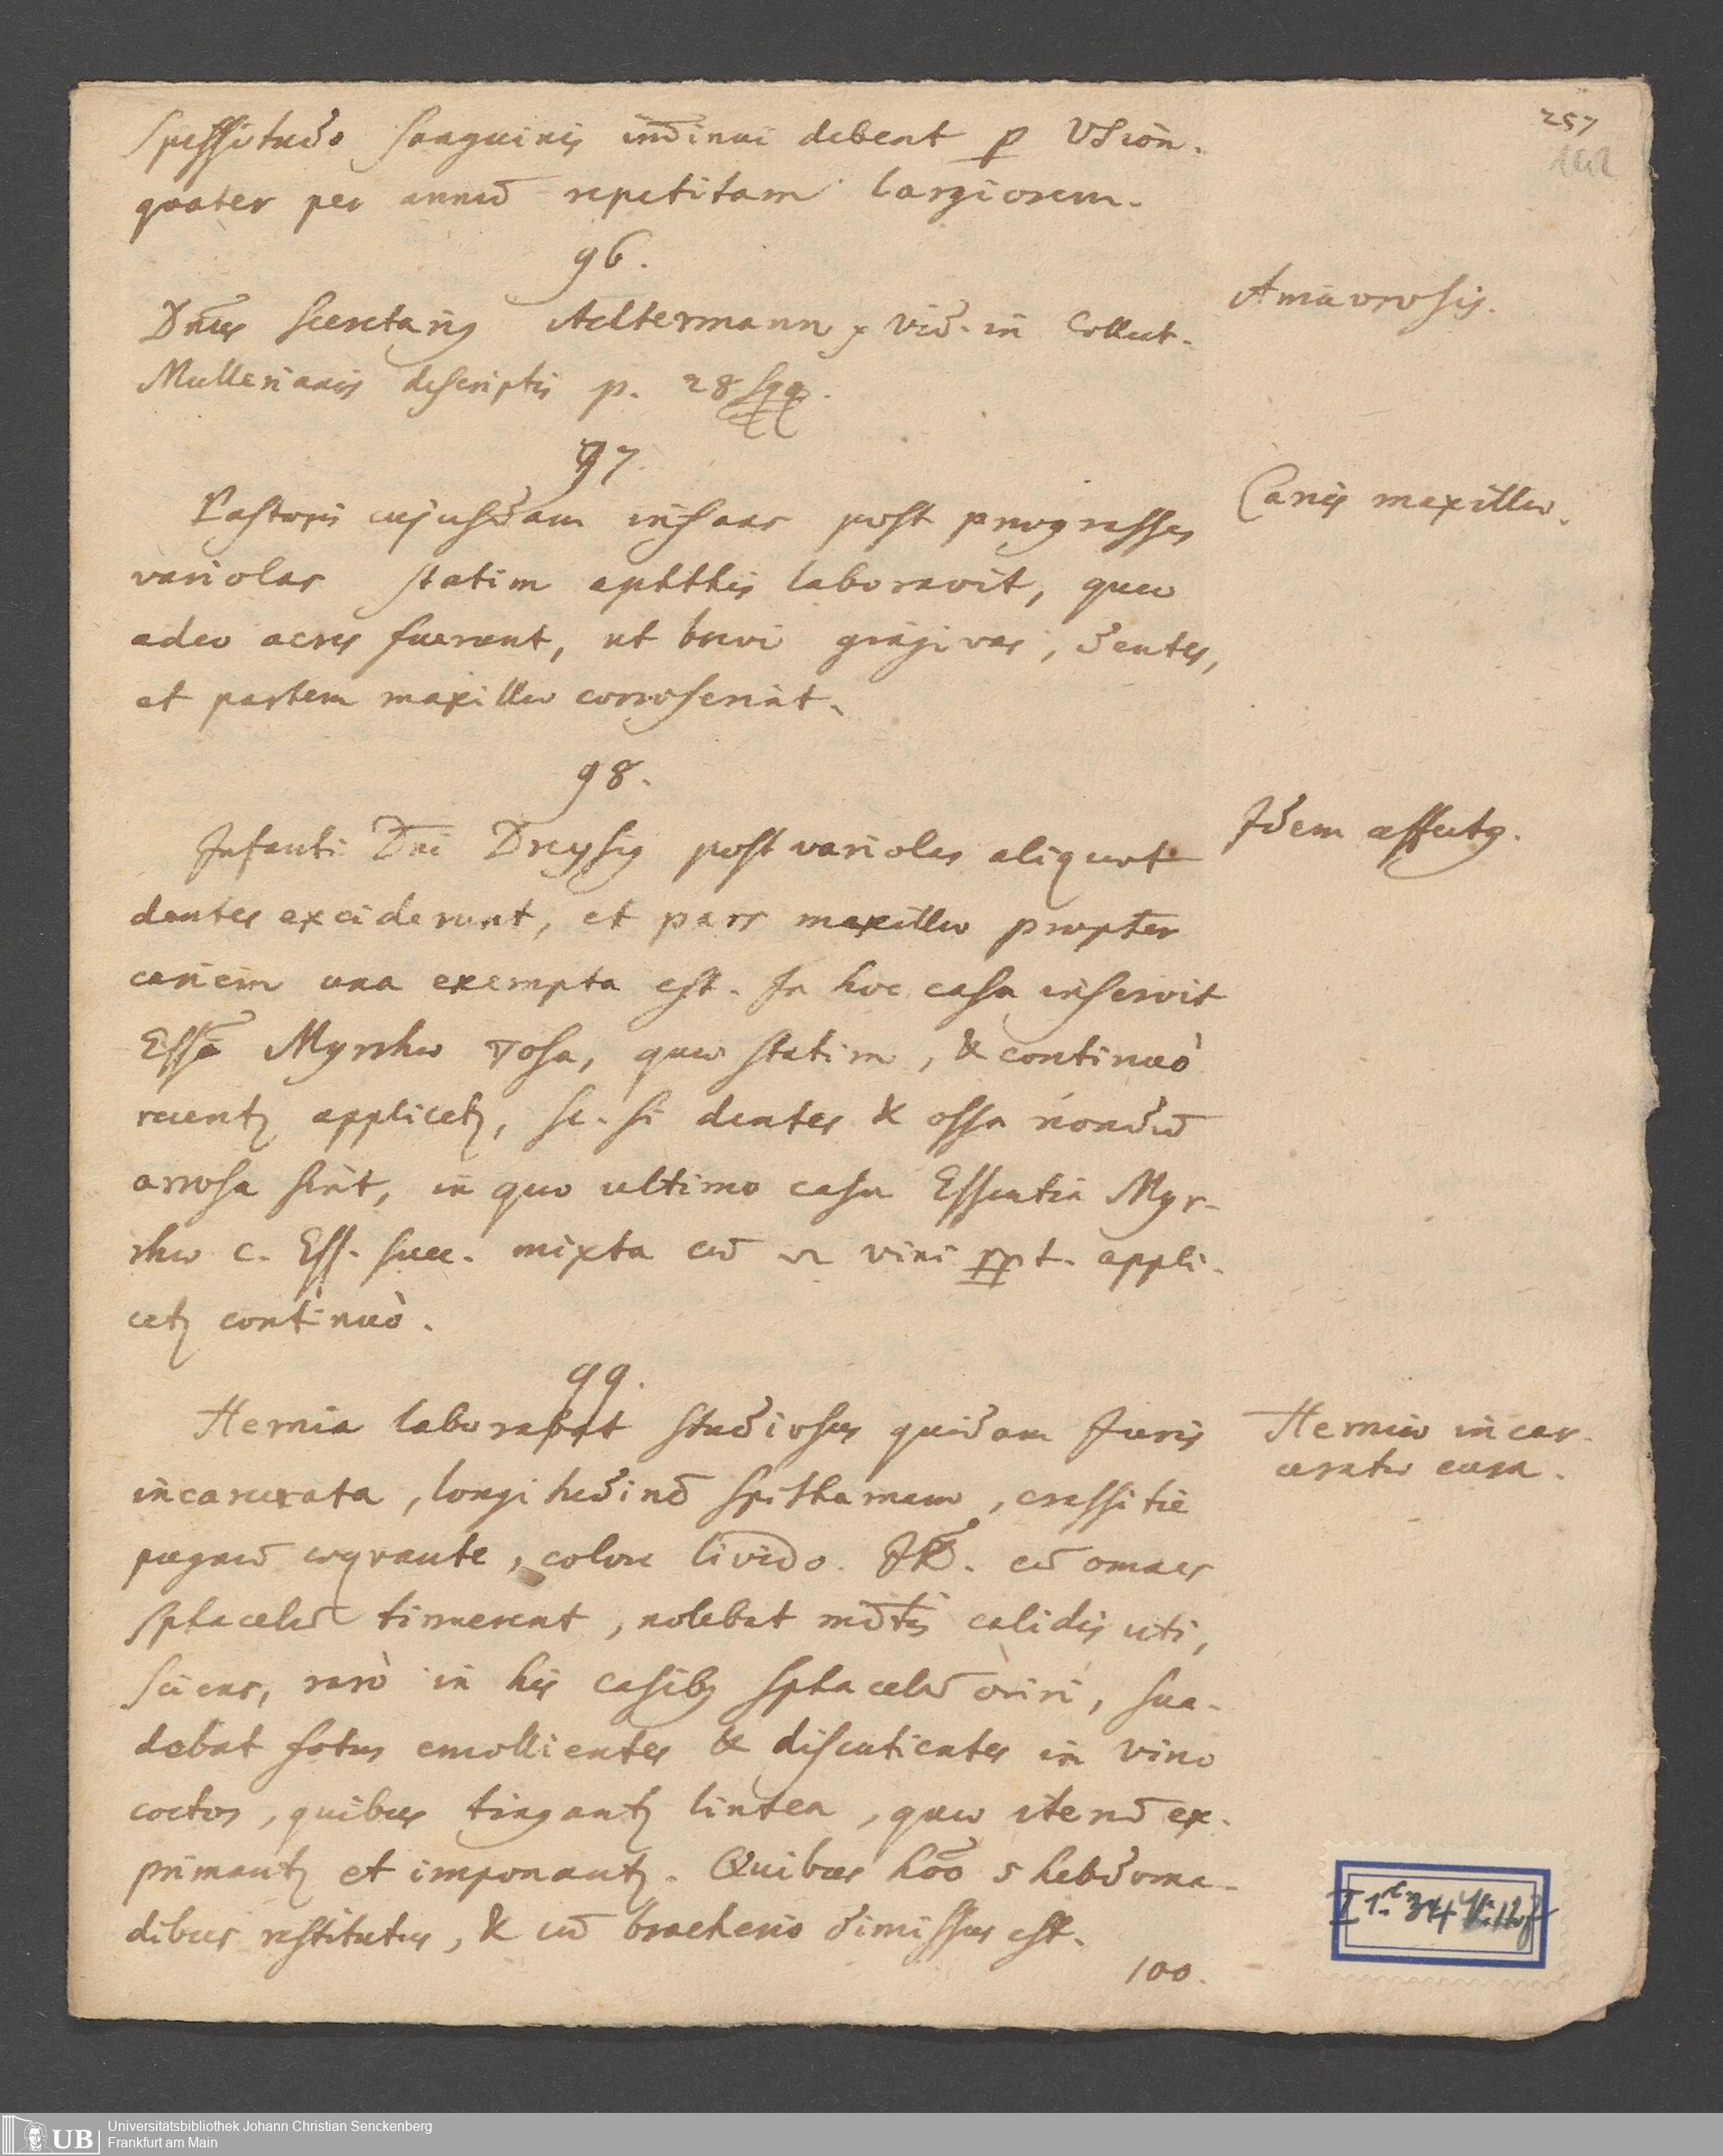 257
142
spissitudo sanguinis im̄inui debent p VSiōn.
quater per annū repetitam largiorem.
96.
Amaurosis.
Dn̄us Secretariꝰ Acktermann vid. in Collect.
Mullerianis descriptis p. 28 sqq.
97.
Caries maxillæ.
Pastoris cujusdam infans post progressas
variolas statim aphthis laboravit, quæ
adeo acres fuerunt, ut brevi gingivas, dentes,
et partem maxillæ corroserint.
98.
Idem affectꝰ.
Infanti Dn̄i Dreysig post variolas aliquot
dentes exciderunt, et pars maxillæ propter
cariem una exempta est. In hoc casu inservit
Ess̄a Myrrhæ 🜄osa, quæ statim, & continuò
recentꝫ applicetꝫ, sc. si dentes & ossa nondū
arrosa sint, in quo ultimo casu Essentia Myr-
rhæ c. Ess. succ. mixta cū vini ppt. appli-
cetꝫ continuò.
99.
Herniæ incar-
ceratæ cura.
Hernia laborabat studiosus quidam Juris
incarcerata, longitudinē spithamæ, crassitie
pugnū æqvante, colore livido. cū omnes
sphacelū timerent, nolebat mdtis calidis uti,
sciens, rarò in his casibꝰ sphacelū oriri, sua-
debat fotus emollientes & discutientes in vino
coctos, quibus tingantꝫ lintea, quæ iterū ex-
primantꝫ et imponantꝫ. Quibus hōo 5 hebdoma-
dibus restitutus, & cū bracherio dimissus est.
100.
UB
Universitätsbibliothek Johann Christian Senckenberg
Frankfurt am Main